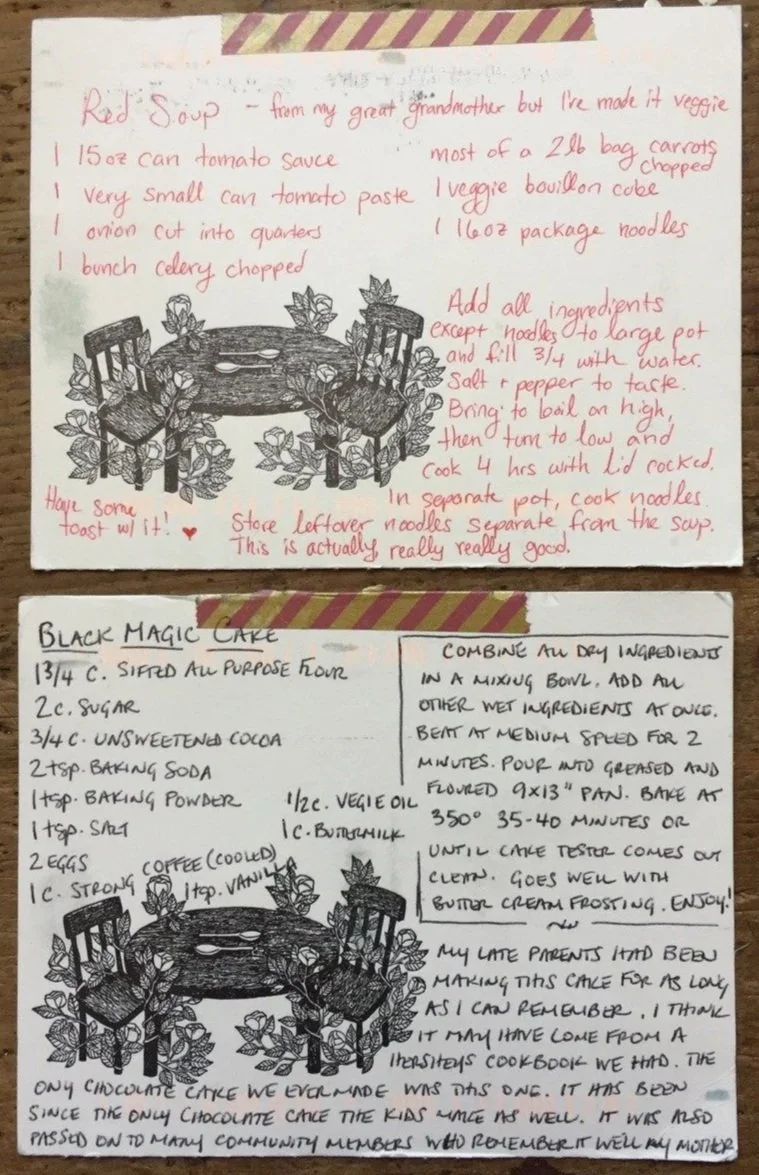 Red Soup - from my great grandmother but I've made it veggie
1 15oz can tomato sauce
1 very small can tomato paste
1 onion cut into quarters
1 bunch celery chopped
most of a 2lb bag carrots
chopped
1 veggie bouillon cube
1 16oz package noodles
Add all ingredients
except noodles to large pot
and fill 3/4 with water.
Salt + pepper to taste.
Bring to boil on high,
then turn to low and
cook 4 hrs with lid cocked.
In separate pot, cook noodles.
Store leftover noodles separate from the soup.
This is actually really really good.
Have some
toast w/ it! ♥
BLACK MAGIC CAKE
1 3/4 C. SIFTED ALL PURPOSE FLOUR
2 C. SUGAR
3/4 C. UNSWEETENED COCOA
2 tsp. BAKING SODA
1 tsp. BAKING POWDER
1 tsp. SALT
2 EGGS
1 C. STRONG COFFEE (COOLED)
1/2 C. VEGIE OIL
1 C. BUTTERMILK
1 tsp. VANILLA
COMBINE ALL DRY INGREDIENTS
IN A MIXING BOWL. ADD ALL
OTHER WET INGREDIENTS AT ONCE.
BEAT AT MEDIUM SPEED FOR 2
MINUTES. POUR INTO GREASED AND
FLOURED 9X13" PAN. BAKE AT
350° 35-40 MINUTES OR
UNTIL CAKE TESTER COMES OUT
CLEAN. GOES WELL WITH
BUTTER CREAM FROSTING. ENJOY!
MY LATE PARENTS HAD BEEN
MAKING THIS CAKE FOR AS LONG
AS I CAN REMEMBER. I THINK
IT MAY HAVE COME FROM A
HERSHEYS COOKBOOK WE HAD. THE
ONLY CHOCOLATE CAKE WE EVER MADE WAS THIS ONE. IT HAS BEEN
SINCE THE ONLY CHOCOLATE CAKE THE KIDS MAKE AS WELL. IT WAS ALSO
PASSED ON TO MANY COMMUNITY MEMBERS WHO REMEMBER IT WELL MY MOTHER